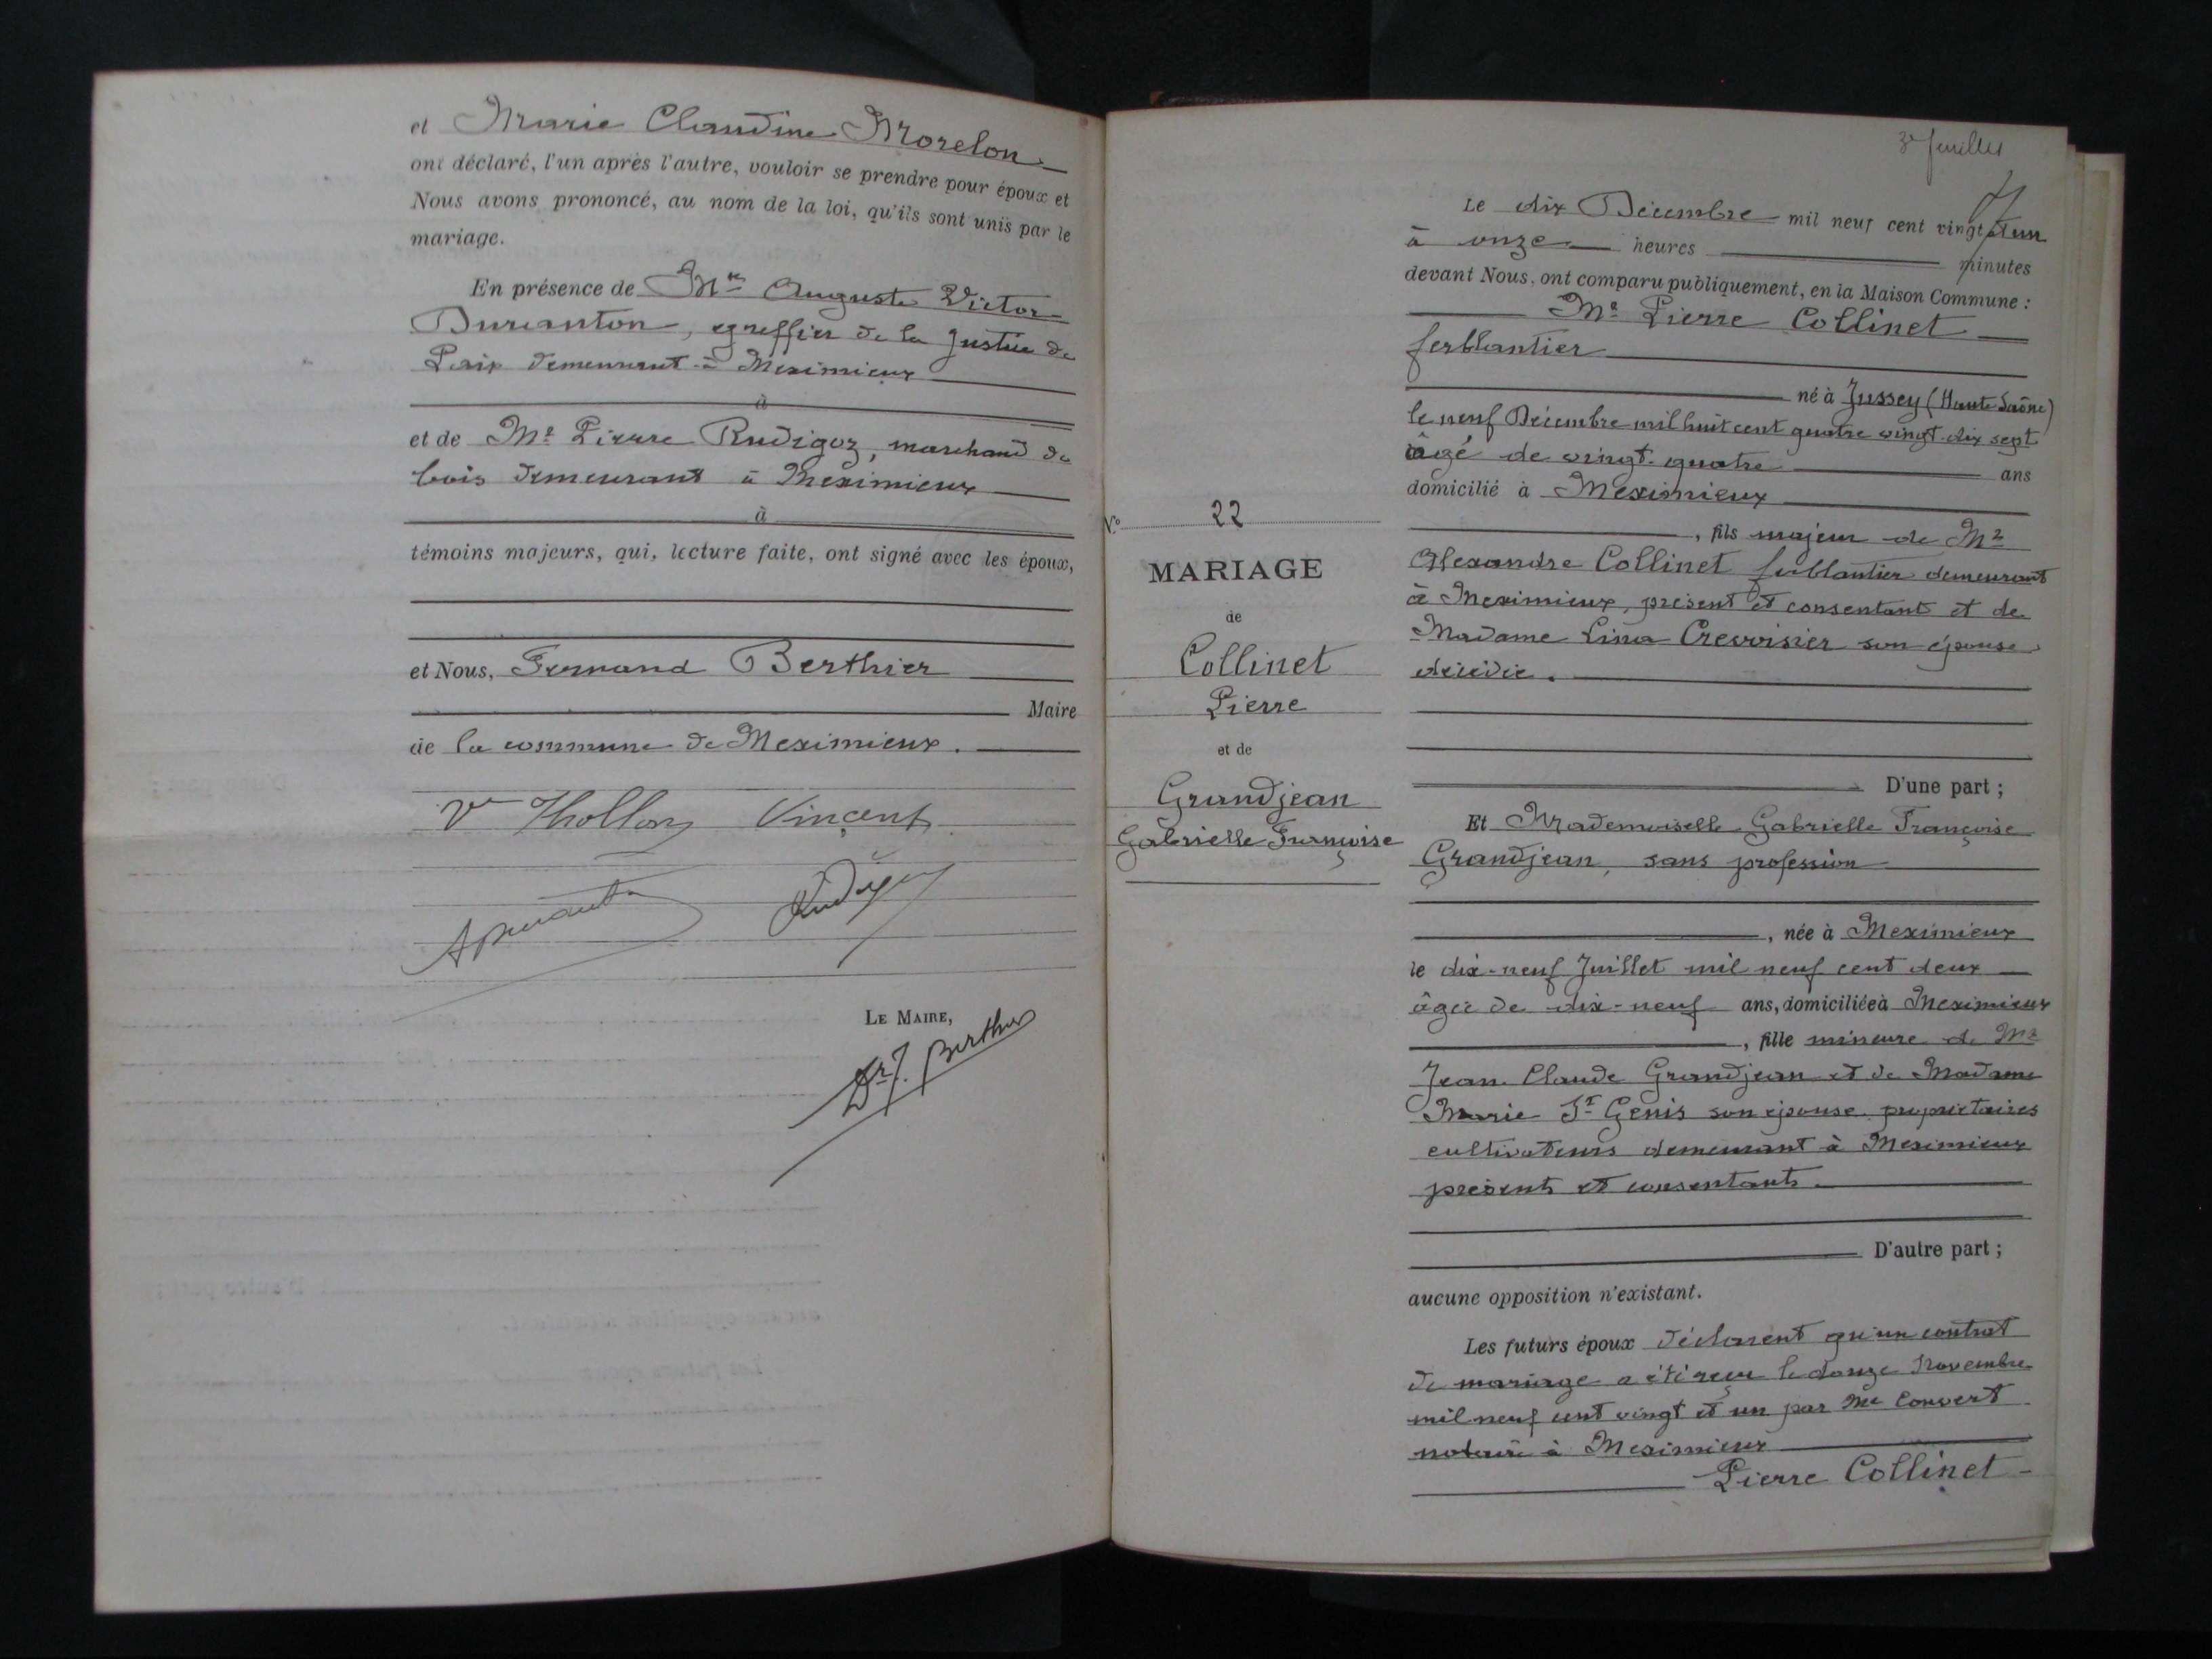 et Marie Claudine Morelon
ont déclaré, l'un après l'autre, vouloir se prendre pour époux et
Nous avons prononcé, au nom de la loi, qu'ils sont unis par le
mariage.
En présence de Mr Auguste Victor
Durianton, greffier de la Justice de
Paix demeurant à Meximieux
à
et de Mr Pierre Rudigoz, marchand de
bois demeurant à Meximieux
à
témoins majeurs, qui, lecture faite, ont signé avec les époux,
et Nous, Fernand Berthier
Maire
de la commune de Meximieux.
Vve Thollon Vincent
Rudigoz
LE MAIRE,
Dr F. Berthier
3e feuillet
N° 22
MARIAGE
de
Collinet
Pierre
et de
Grandjean
Gabrielle Françoise
Le dix Décembre mil neuf cent vingt et un
à onze heures minutes
devant Nous, ont comparu publiquement, en la Maison Commune :
Mr Pierre Collinet
ferblantier
né à Jussey (Haute-Saône)
le neuf Décembre mil huit cent quatre vingt-dix sept
âgé de vingt-quatre ans
domicilié à Meximieux
, fils majeur de Mr
Alexandre Collinet ferblantier demeurant
à Meximieux, présent et consentant et de
Madame Lina Crevoisier son épouse
décédée.
D'une part ;
Et Mademoiselle Gabrielle Françoise
Grandjean, sans profession
, née à Meximieux
le dix-neuf Juillet mil neuf cent deux
âgée de dix-neuf ans, domiciliée à Meximieux
, fille mineure de Mr
Jean Claude Grandjean et de Madame
Marie St Genis son épouse propriétaires
cultivateurs demeurant à Meximieux
présents et consentants.
D'autre part ;
aucune opposition n'existant.
Les futurs époux déclarent qu'un contrat
de mariage a été reçu le douze Novembre
mil neuf cent vingt et un par Me Convert
notaire à Meximieux
Pierre Collinet